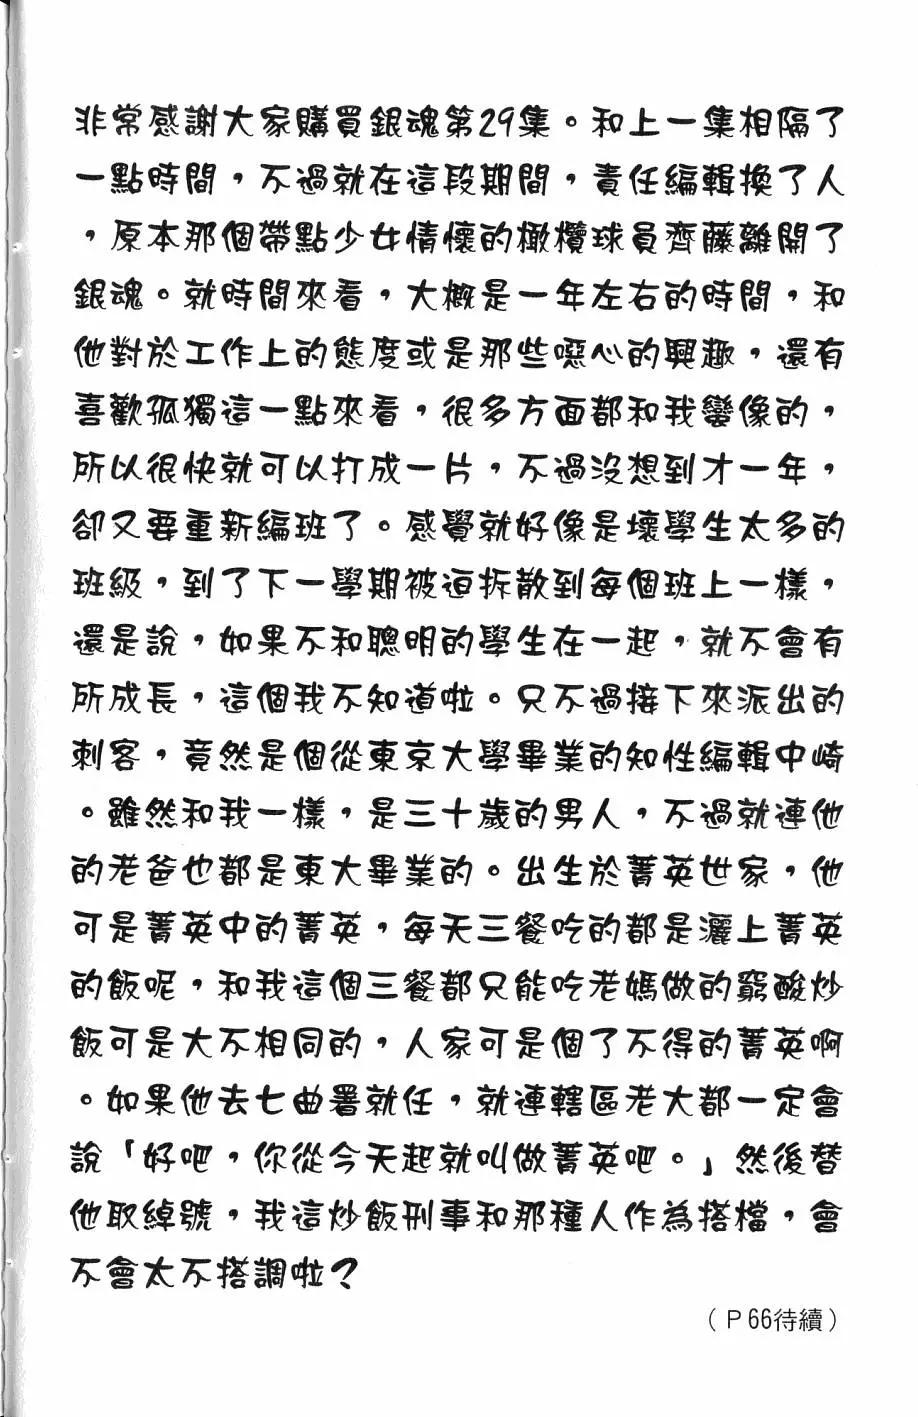 非常感謝大家購買銀魂第29集。和上一集相隔了
一點時間，不過就在這段期間，責任編輯換了人
，原本那個帶點少女情懷的橄欖球員齊藤離開了
銀魂。就時間來看，大概是一年左右的時間，和
他對於工作上的態度或是那些噁心的興趣，還有
喜歡孤獨這一點來看，很多方面都和我蠻像的，
所以很快就可以打成一片，不過沒想到才一年，
卻又要重新編班了。感覺就好像是壞學生太多的
班級，到了下一學期被迫拆散到每個班上一樣，
還是說，如果不和聰明的學生在一起，就不會有
所成長，這個我不知道啦。只不過接下來派出的
刺客，竟然是個從東京大學畢業的知性編輯中崎
。雖然和我一樣，是三十歲的男人，不過就連他
的老爸也都是東大畢業的。出生於菁英世家，他
可是菁英中的菁英，每天三餐吃的都是灑上菁英
的飯呢，和我這個三餐都只能吃老媽做的窮酸炒
飯可是大不相同的，人家可是個了不得的菁英啊
。如果他去七曲署就任，就連轄區老大都一定會
說「好吧，你從今天起就叫做菁英吧。」然後替
他取綽號，我這炒飯刑事和那種人作為搭檔，會
不會太不搭調啦？
（P66待續）